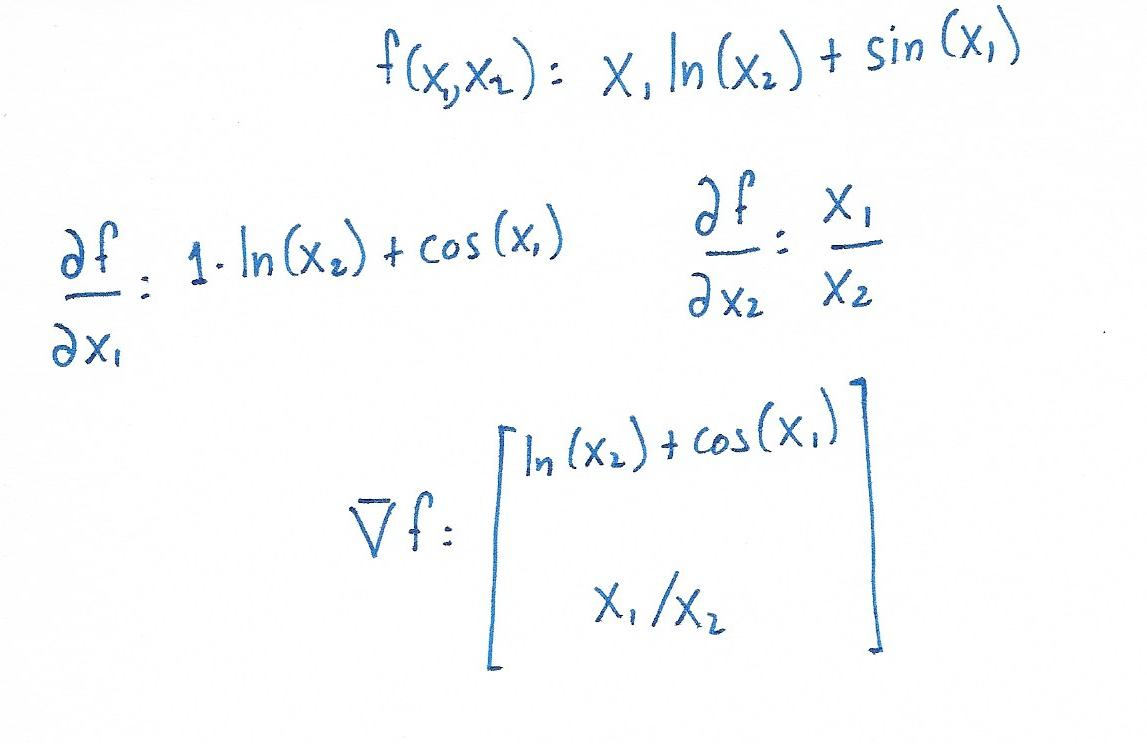 f(x₁,x₂) = x₁ ln(x₂) + sin(x₁)
∂f/∂x₁ = 1·ln(x₂) + cos(x₁)
∂f/∂x₂ = x₁/x₂
∇f = [ln(x₂) + cos(x₁)
x₁/x₂]